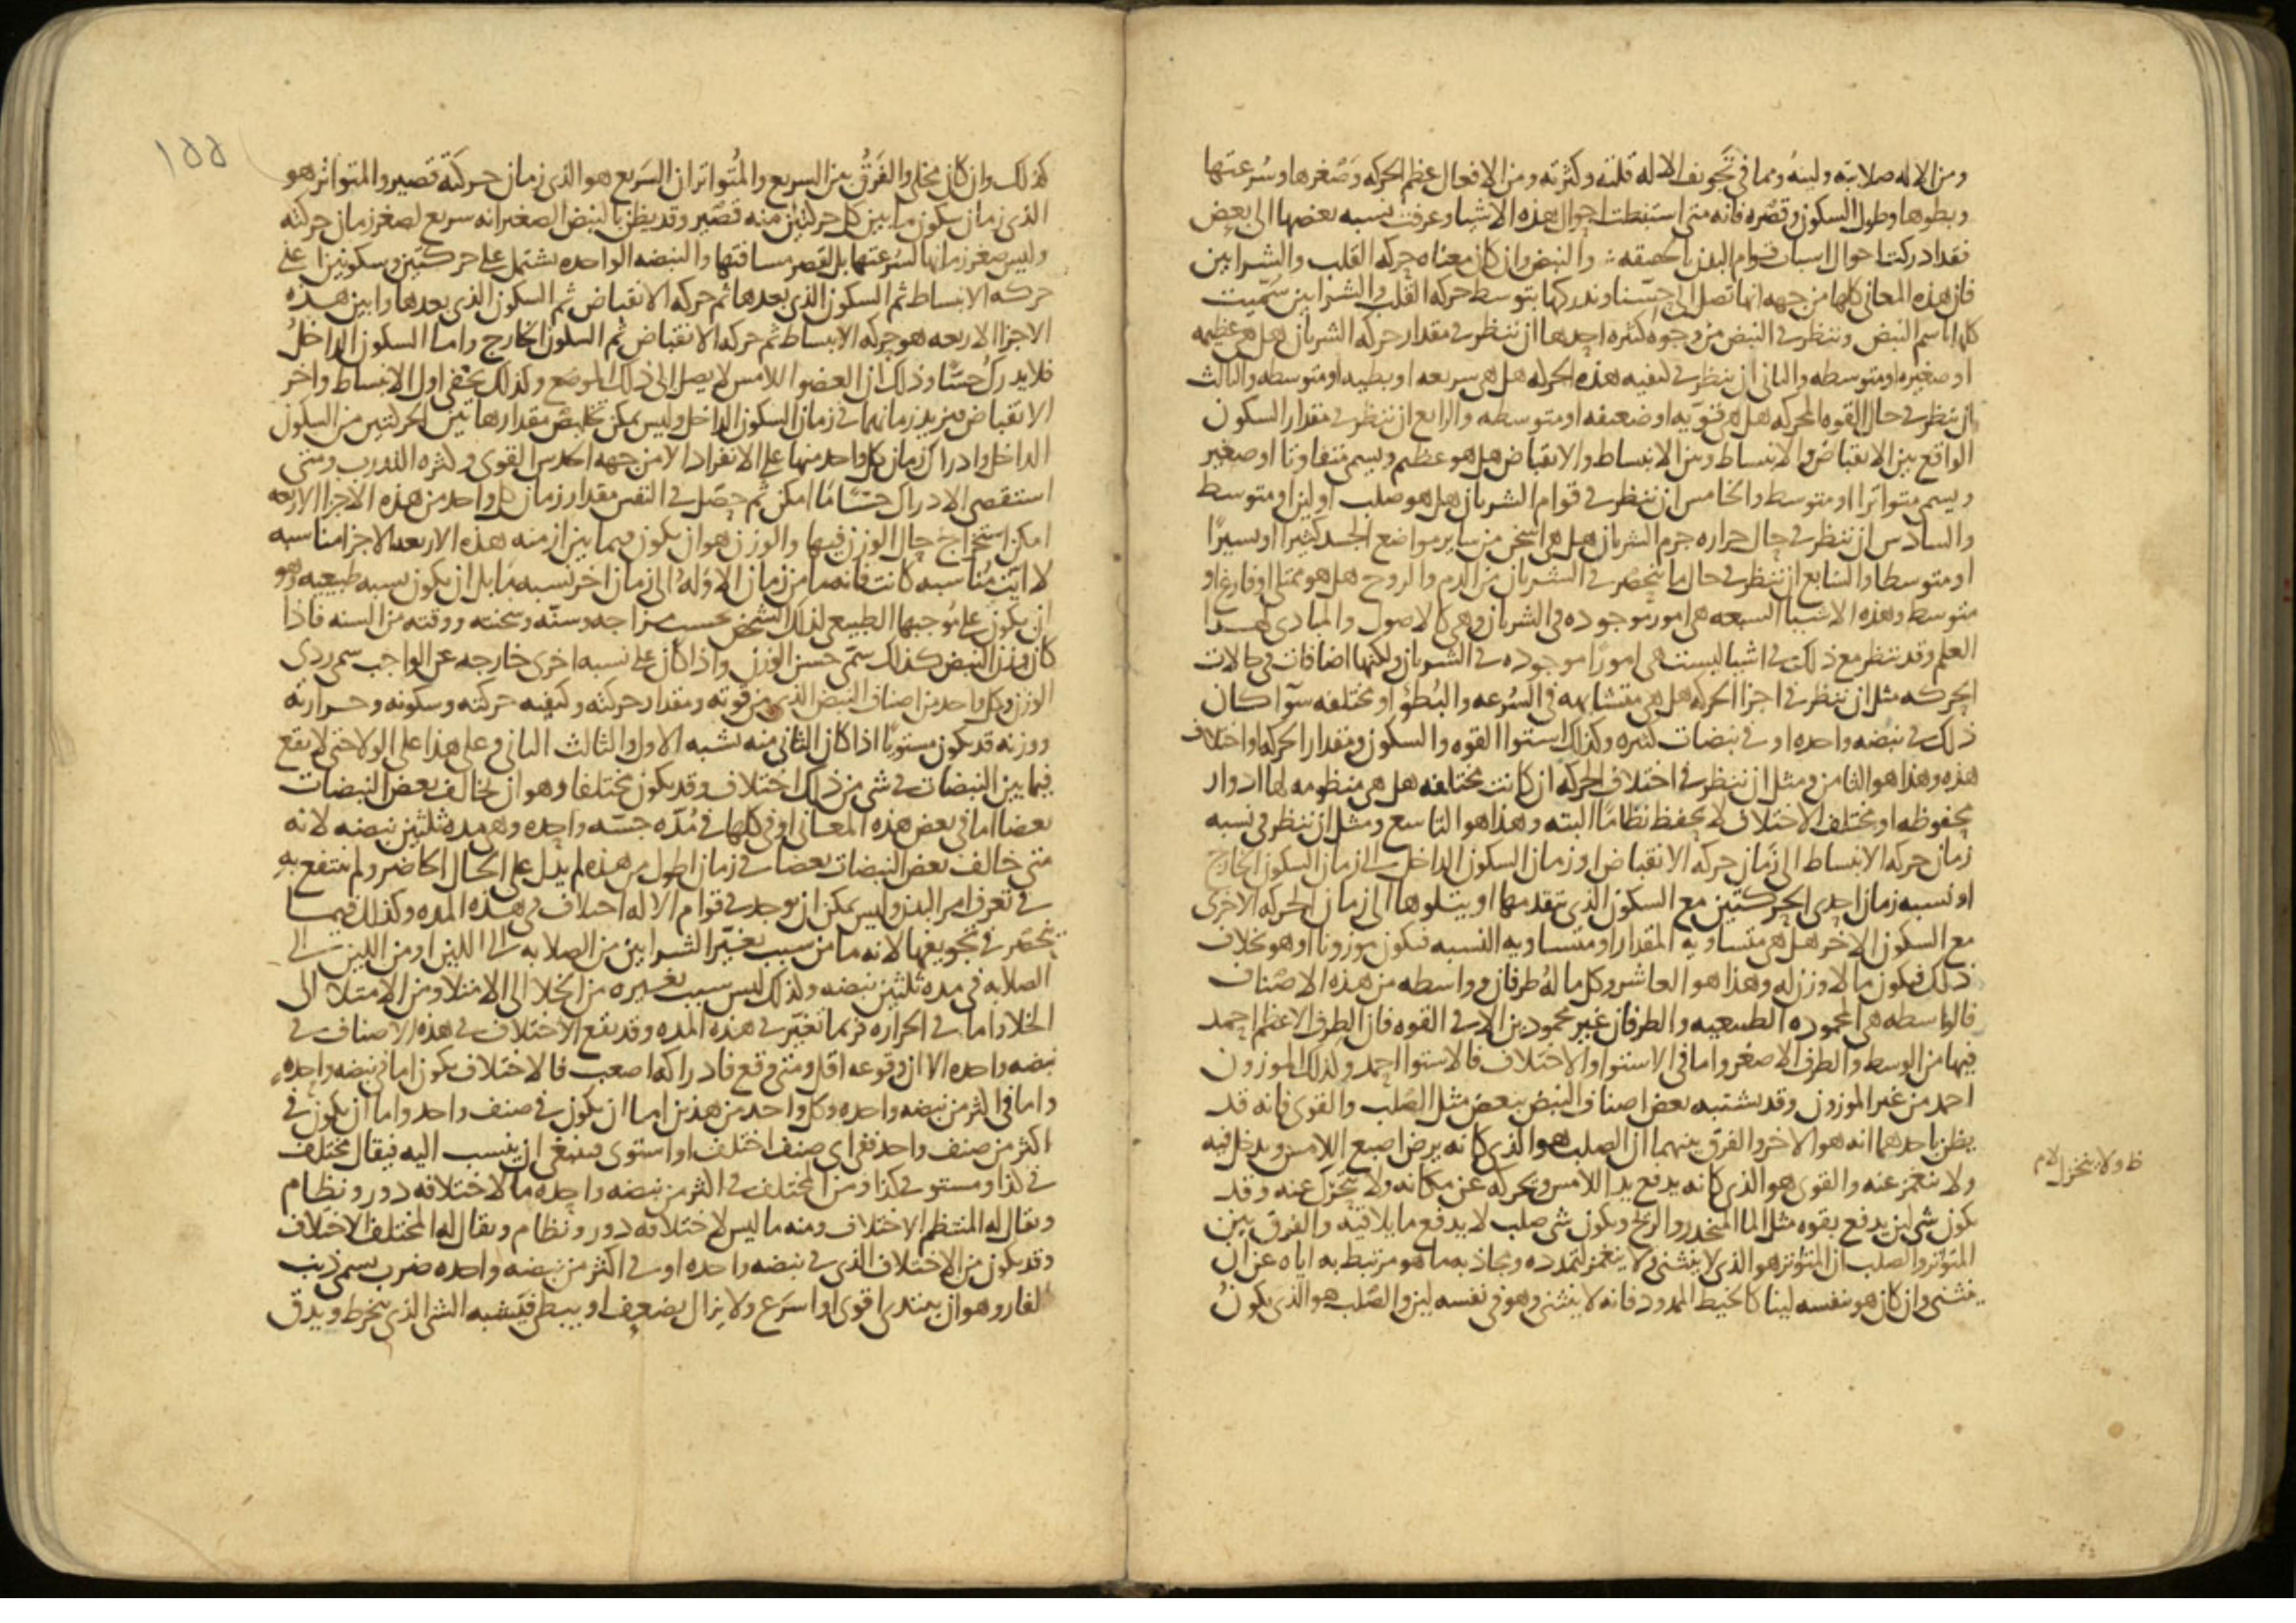 ومن الاله صلابته ولينه ومما في تجويف الاله قلته وكثرته ومن الافعال عظم الحركه وصغرها وسرعتها
وبطوها وطول السكون وقصره فانه متى استنبطت احوال هذه الاشيا وعرفت نسبه بعضها الى بعض
فقد ادركت احوال اسباب قوام البدن بالحقيقه والنبض وان كان معناه حركه القلب والشرايين
فان هذه المعاني كلها من جهه انها تصل الى حسنا وندركها بتوسط حركه القلب والشرايين سميت
كلها باسم النبض وننظر في النبض من وجوه كثيره احدها ان ننظر في مقدار حركه الشريان هل هي عظيمه
او صغيره او متوسطه والثاني ان ننظر في كيفيه هذه الحركه هل هي سريعه او بطيه او متوسطه والثالث
ان ننظر في حال القوه المحركه هل هي قويه او ضعيفه او متوسطه والرابع ان ننظر في مقدار السكون
الواقع بين الانقباض والانبساط وبين الانبساط والانقباض هل هو عظيم ويسمى متفاوتا او صغير
ويسمى متواترا او متوسط والخامس ان ننظر في قوام الشريان هل هو صلب او لين او متوسط
والسادس ان ننظر في حال حراره جرم الشريان هل هي اسخن من ساير مواضع الجسد كثيرا او يسيرا
او متوسطا والسابع ان ننظر في حال ما ينحصر في الشريان من الدم والروح هل هو ممتلي او فارغ او
متوسط وهذه الاشيا السبعه هي امور موجوده في الشريان وهي كالاصول والمبادى لهذا
العلم وقد ننظر مع ذلك في اشيا ليست هي امورا موجوده في الشريان ولكنها اضافات في حالات
الحركه مثل ان ننظر في اجزا الحركه هل هي متشابهه في السرعه والبطو او مختلفه سوا كان
ذلك في نبضه واحده او في نبضات كثيره وكذلك استوا القوه والسكون ومقدار الحركه او اختلاف
هذه وهذا هو الثامن ومثل ان ننظر في اختلاف الحركه ان كانت مختلفه هل هي منظومه لها ادوار
محفوظه او مختلف الاختلاف لا يحفظ نظاما البته وهذا هو التاسع ومثل ان ننظر في نسبه
زمان حركه الانبساط الى زمان حركه الانقباض او زمان السكون الداخل الى زمان السكون الخارج
او نسبه زمان احدى الحركتين مع السكون الذي يتقدمها او يتلوها الى زمان الحركه الاخرى
مع السكون الاخر هل هي متساويه المقدار او متساويه النسبه فيكون موزونا او هو بخلاف
ذلك فيكون مما لا وزن له وهذا هو العاشر وكل ما له طرفان وواسطه من هذه الاصناف
فالواسطه هي المحموده الطبيعيه والطرفان غير محمودين الا في القوه فان الطرف الاعظم احمد
فيها من الوسط والطرف الاصغر واما في الاستوا والاختلاف فالاستوا احمد ولذلك الموزون
احمد من غير الموزون وقد يشتبه بعض اصناف النبض ببعض مثل الصلب والقوى فانه قد
يظن باحدهما انه هو الاخر والفرق بينهما ان الصلب هو الذي كانه يرض اصبع اللامس ويدخل فيه
ولا ينغمز عنه والقوى هو الذي كانه يدفع يد اللامس ويحركه عن مكانه ولا ينخزل عنه وقد
يكون شي لين يدفع بقوه مثل الما المنحدر والريح ويكون شي صلب لا يدفع ما يلاقيه والفرق بين
المتوتر والصلب ان المتوتر هو الذي لا ينثني ولا ينغمز لتمدده ومجاذبه ما هو مرتبط به اياه عن ان
ينثنى وان كان هو بنفسه لينا كالخيط الممدود فانه لا ينثني وهو في نفسه لين والصلب هو الذي يكون
ظ ولا ينخزل لام
١٥٥
كذلك وان كان مخلى والفرق بين السريع والمتواتر ان السريع هو الذي زمان حركته قصير والمتواتر هو
الذي زمان سكون ما بين كل حركتين منه قصير وقد يظن بالنبض الصغير انه سريع لصغر زمان حركته
وليس صغر زمانها لسرعتها بل لقصر مسافتها والنبضه الواحده تشتمل على حركتين وسكونين على
حركه الانبساط ثم السكون الذي بعدها ثم حركه الانقباض ثم السكون الذي بعدها وابين هذه
الاجزا الاربعه هو حركه الانبساط ثم حركه الانقباض ثم السكون الخارج واما السكون الداخل
فلا يدرك حسا وذلك ان العضو اللامس لا يصل الى ذلك الموضع وكذلك يخفى اول الانبساط واخر
الانقباض فيزيد زمانهما في زمان السكون الداخل وليس يمكن تلخيص مقدارها بين الحركتين من السكون
الداخل وادراك زمان كل واحد منها على الانفراد الا من جهه الحدس القوى وكثره التدرب ومتى
استقصى الادراك حسا ما امكن ثم حصل في النفس مقدار زمان كل واحد من هذه الاجزا الاربعه
امكن استخراج حال الوزن فيها والوزن هو ان يكون فيما بين ازمنه هذه الاربعه الاجزا مناسبه
لا ايت مناسبه كانت فانه ما من زمان الا وله الى زمان اخر نسبه ما بل ان يكون نسبه طبيعيه وهو
ان يكون على موجبها الطبيعي لذلك الشخص بحسب مزاجه وسنه وسحنته ووقته من السنه فاذا
كان وزن النبض كذلك سمى حسن الوزن واذا كان على نسبه اخرى خارجه عن الواجب سمى ردى
الوزن وكل واحد من اصناف النبض الذي من قوته ومقدار حركته وكيفيه حركته وسكونه وحرارته
ووزنه قد يكون مستويا اذا كان الثاني منه يشبه الاول والثالث الثاني وعلى هذا على الولا حتى لا يقع
فيما بين النبضات في شي من ذلك اختلاف وقد يكون مختلفا وهو ان تخالف بعض النبضات
بعضا اما في بعض هذه المعاني او في كلها في مده جسه واحده وهي مده ثلثين نبضه لانه
متى خالف بعض النبضات بعضا في زمان اطول من هذه لم يدل على الحال الحاضر ولم ينتفع به
في تعرف امر البدن وليس يمكن ان يوجد في قوام الاله اختلاف في هذه المده وكذلك فيما
ينحصر في تجويفها لانه ما من سبب يغير الشرايين من الصلابه الى اللين او من اللين الى
الصلابه في مده ثلثين نبضه ولذلك ليس سبب يغيره من الخلا الى الامتلا ومن الامتلا الى
الخلا واما في الحراره فربما تغير في هذه المده وقد يقع الاختلاف في هذه الاصناف في
نبضه واحده الا ان وقوعه اقل ومتى وقع فادراكه اصعب فالاختلاف يكون اما في نبضه واحده
واما في اكثر من نبضه واحده وكل واحد من هذين اما ان يكون في صنف واحد واما ان يكون في
اكثر من صنف واحد ففي اي صنف اختلف او استوى فينبغي ان ينسب اليه فيقال مختلف
في كذا ومستو في كذا ومن المختلف في اكثر من نبضه واحده ما لاختلافه دور ونظام
ويقال له المنتظم الاختلاف ومنه ما ليس لاختلافه دور ونظام ويقال له المختلف الاختلاف
وقد يكون من الاختلاف الذي في نبضه واحده او في اكثر من نبضه واحده ضرب يسمى ذنب
الفار وهو ان يبتدى اقوى او اسرع ولا يزال يضعف او يبطي فيشبه الشي الذي ينخرط ويدق